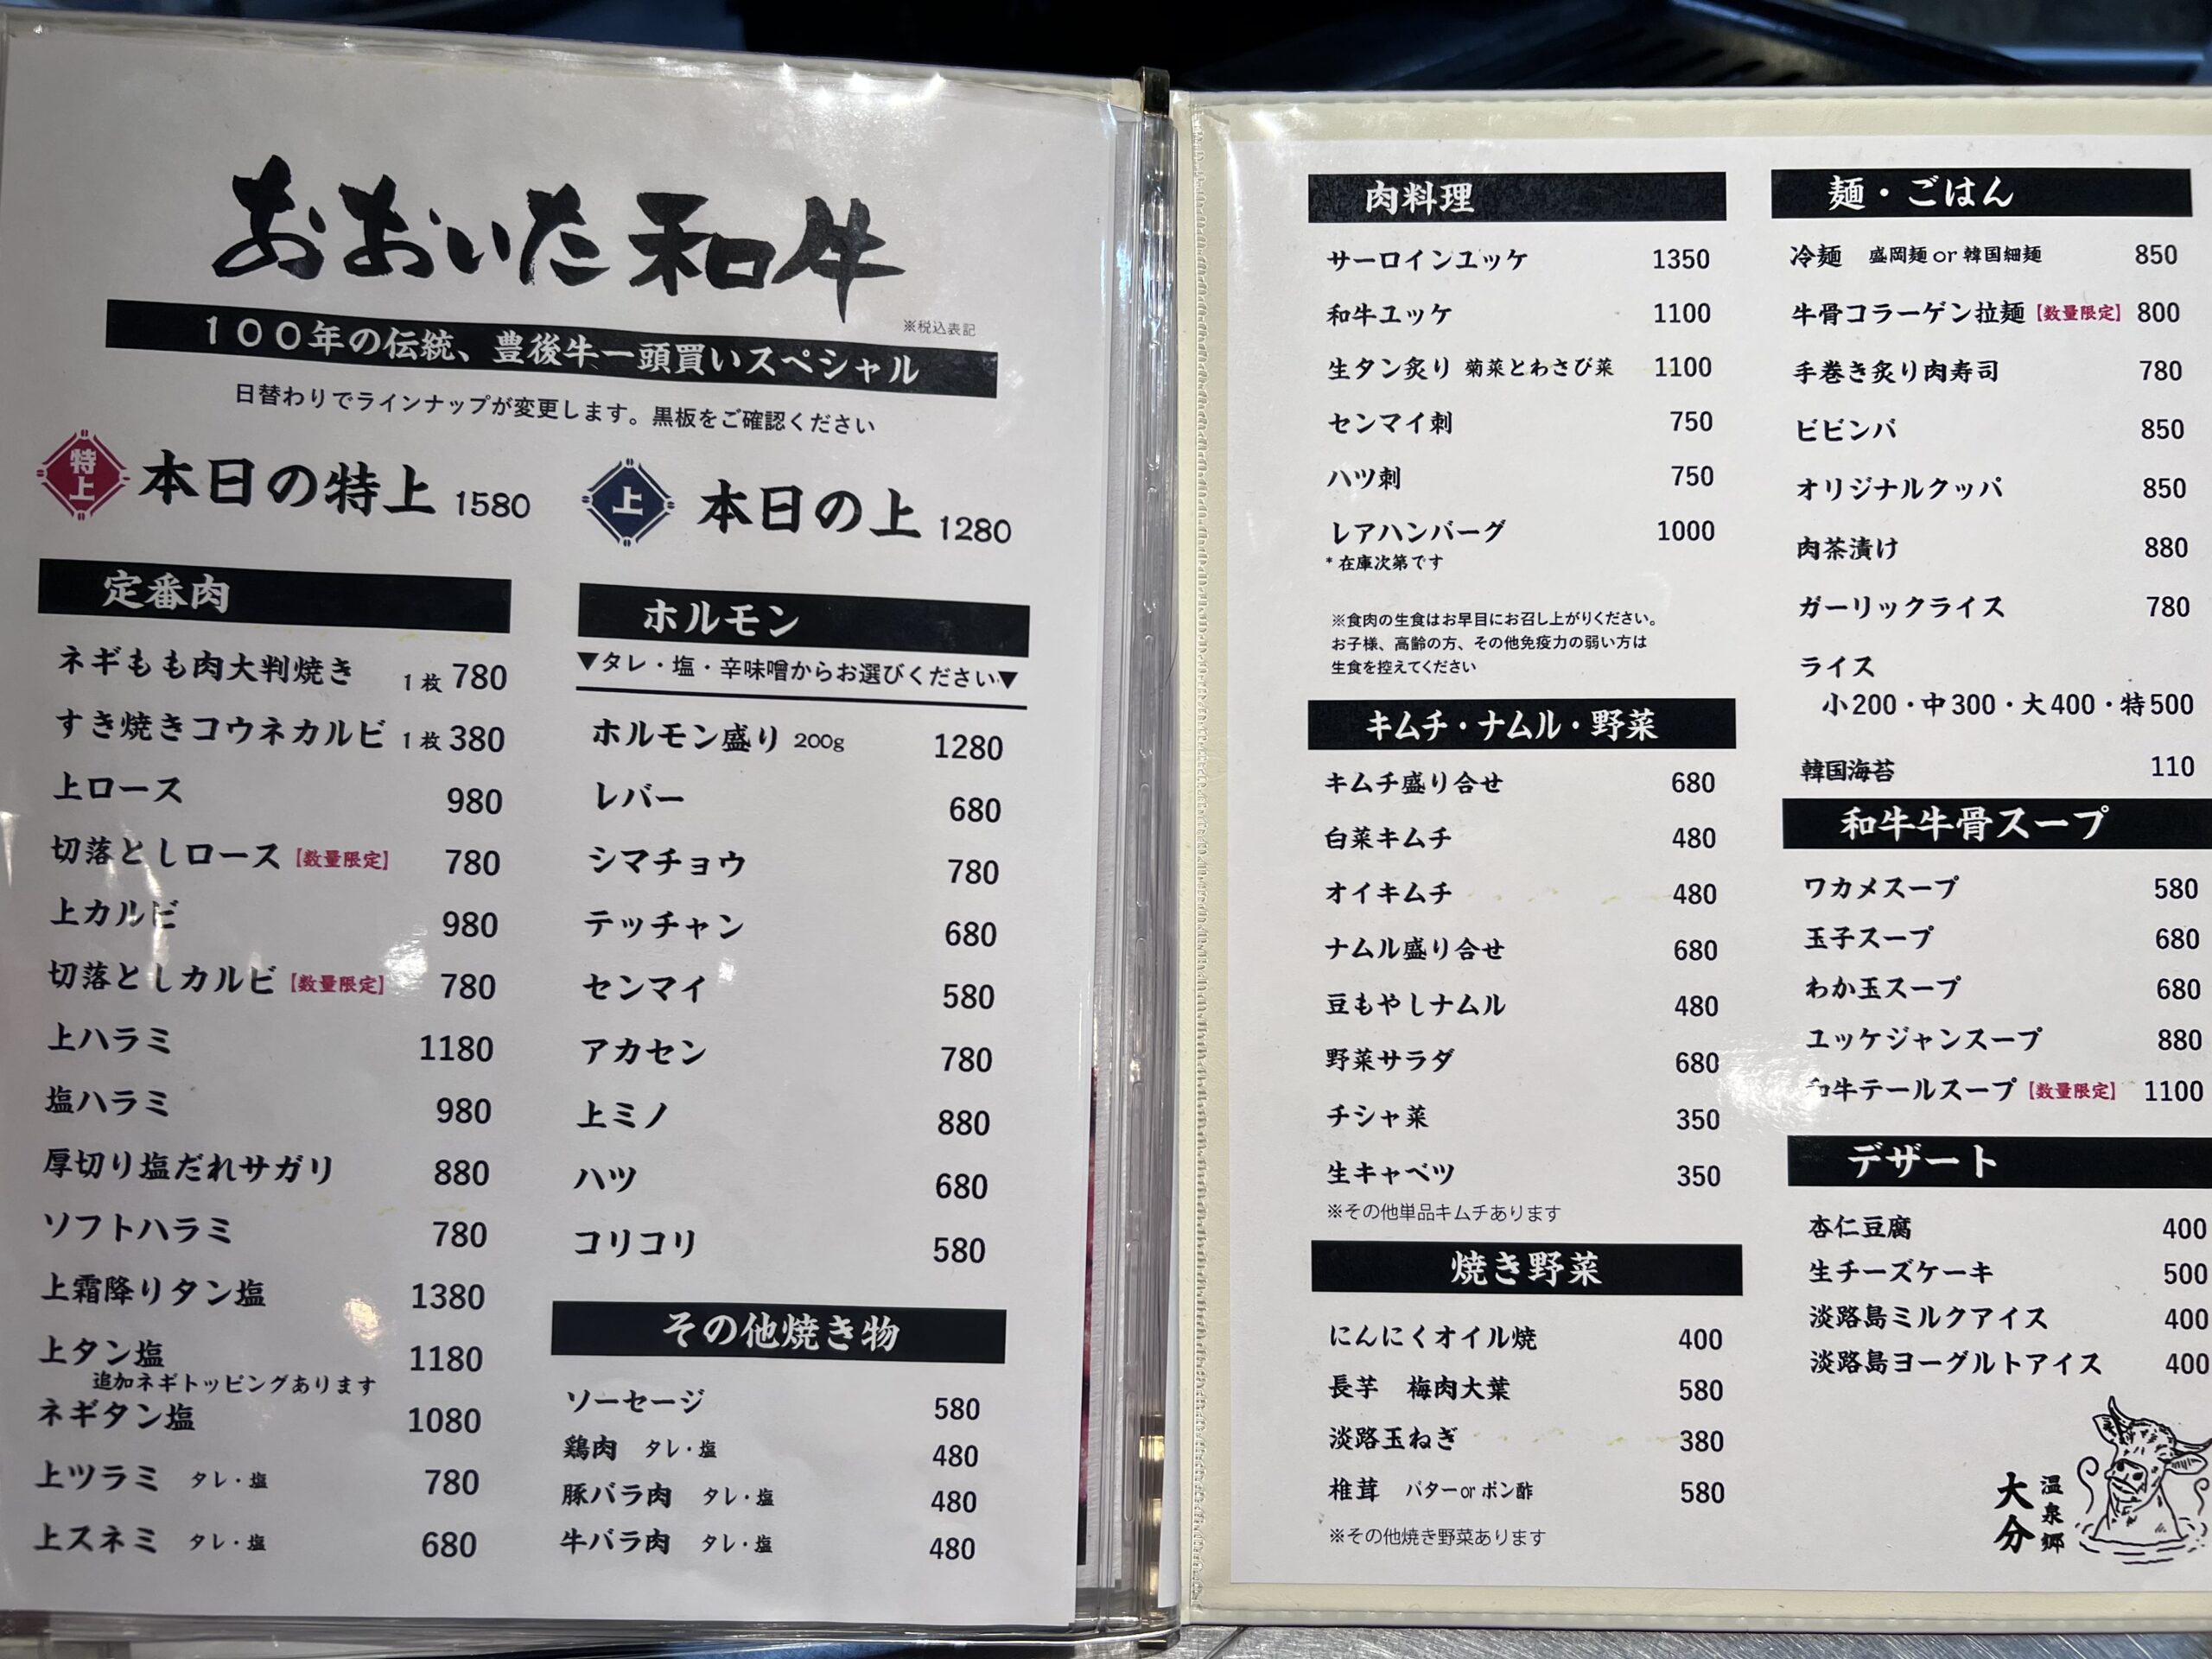 おおいた和牛
※税込表記
100年の伝統、豊後牛一頭買いスペシャル
日替わりでラインナップが変更します。黒板をご確認ください
特上 本日の特上 1580
上 本日の上 1280
定番肉
ネギもも肉大判焼き 1枚 780
すき焼きコウネカルビ 1枚 380
上ロース 980
切落としロース【数量限定】 780
上カルビ 980
切落としカルビ【数量限定】 780
上ハラミ 1180
塩ハラミ 980
厚切り塩だれサガリ 880
ソフトハラミ 780
上霜降りタン塩 1380
上タン塩 1180
追加ネギトッピングあります
ネギタン塩 1080
上ツラミ タレ・塩 780
上スネミ タレ・塩 680
ホルモン
▼タレ・塩・辛味噌からお選びください▼
ホルモン盛り 200g 1280
レバー 680
シマチョウ 780
テッチャン 680
センマイ 580
アカセン 780
上ミノ 880
ハツ 680
コリコリ 580
その他焼き物
ソーセージ 580
鶏肉 タレ・塩 480
豚バラ肉 タレ・塩 480
牛バラ肉 タレ・塩 480
肉料理
サーロインユッケ 1350
和牛ユッケ 1100
生タン炙り 菊菜とわさび菜 1100
センマイ刺 750
ハツ刺 750
レアハンバーグ 1000
* 在庫次第です
※食肉の生食はお早目にお召し上がりください。
お子様、高齢の方、その他免疫力の弱い方は
生食を控えてください
キムチ・ナムル・野菜
キムチ盛り合せ 680
白菜キムチ 480
オイキムチ 480
ナムル盛り合せ 680
豆もやしナムル 480
野菜サラダ 680
チシャ菜 350
生キャベツ 350
※その他単品キムチあります
焼き野菜
にんにくオイル焼 400
長芋 梅肉大葉 580
淡路玉ねぎ 380
椎茸 バターorポン酢 580
※その他焼き野菜あります
麺・ごはん
冷麺 盛岡麺or韓国細麺 850
牛骨コラーゲン拉麺【数量限定】 800
手巻き炙り肉寿司 780
ビビンバ 850
オリジナルクッパ 850
肉茶漬け 880
ガーリックライス 780
ライス
小200・中300・大400・特500
韓国海苔 110
和牛牛骨スープ
ワカメスープ 580
玉子スープ 680
わか玉スープ 680
ユッケジャンスープ 880
和牛テールスープ【数量限定】 1100
デザート
杏仁豆腐 400
生チーズケーキ 500
淡路島ミルクアイス 400
淡路島ヨーグルトアイス 400
温泉郷
大分